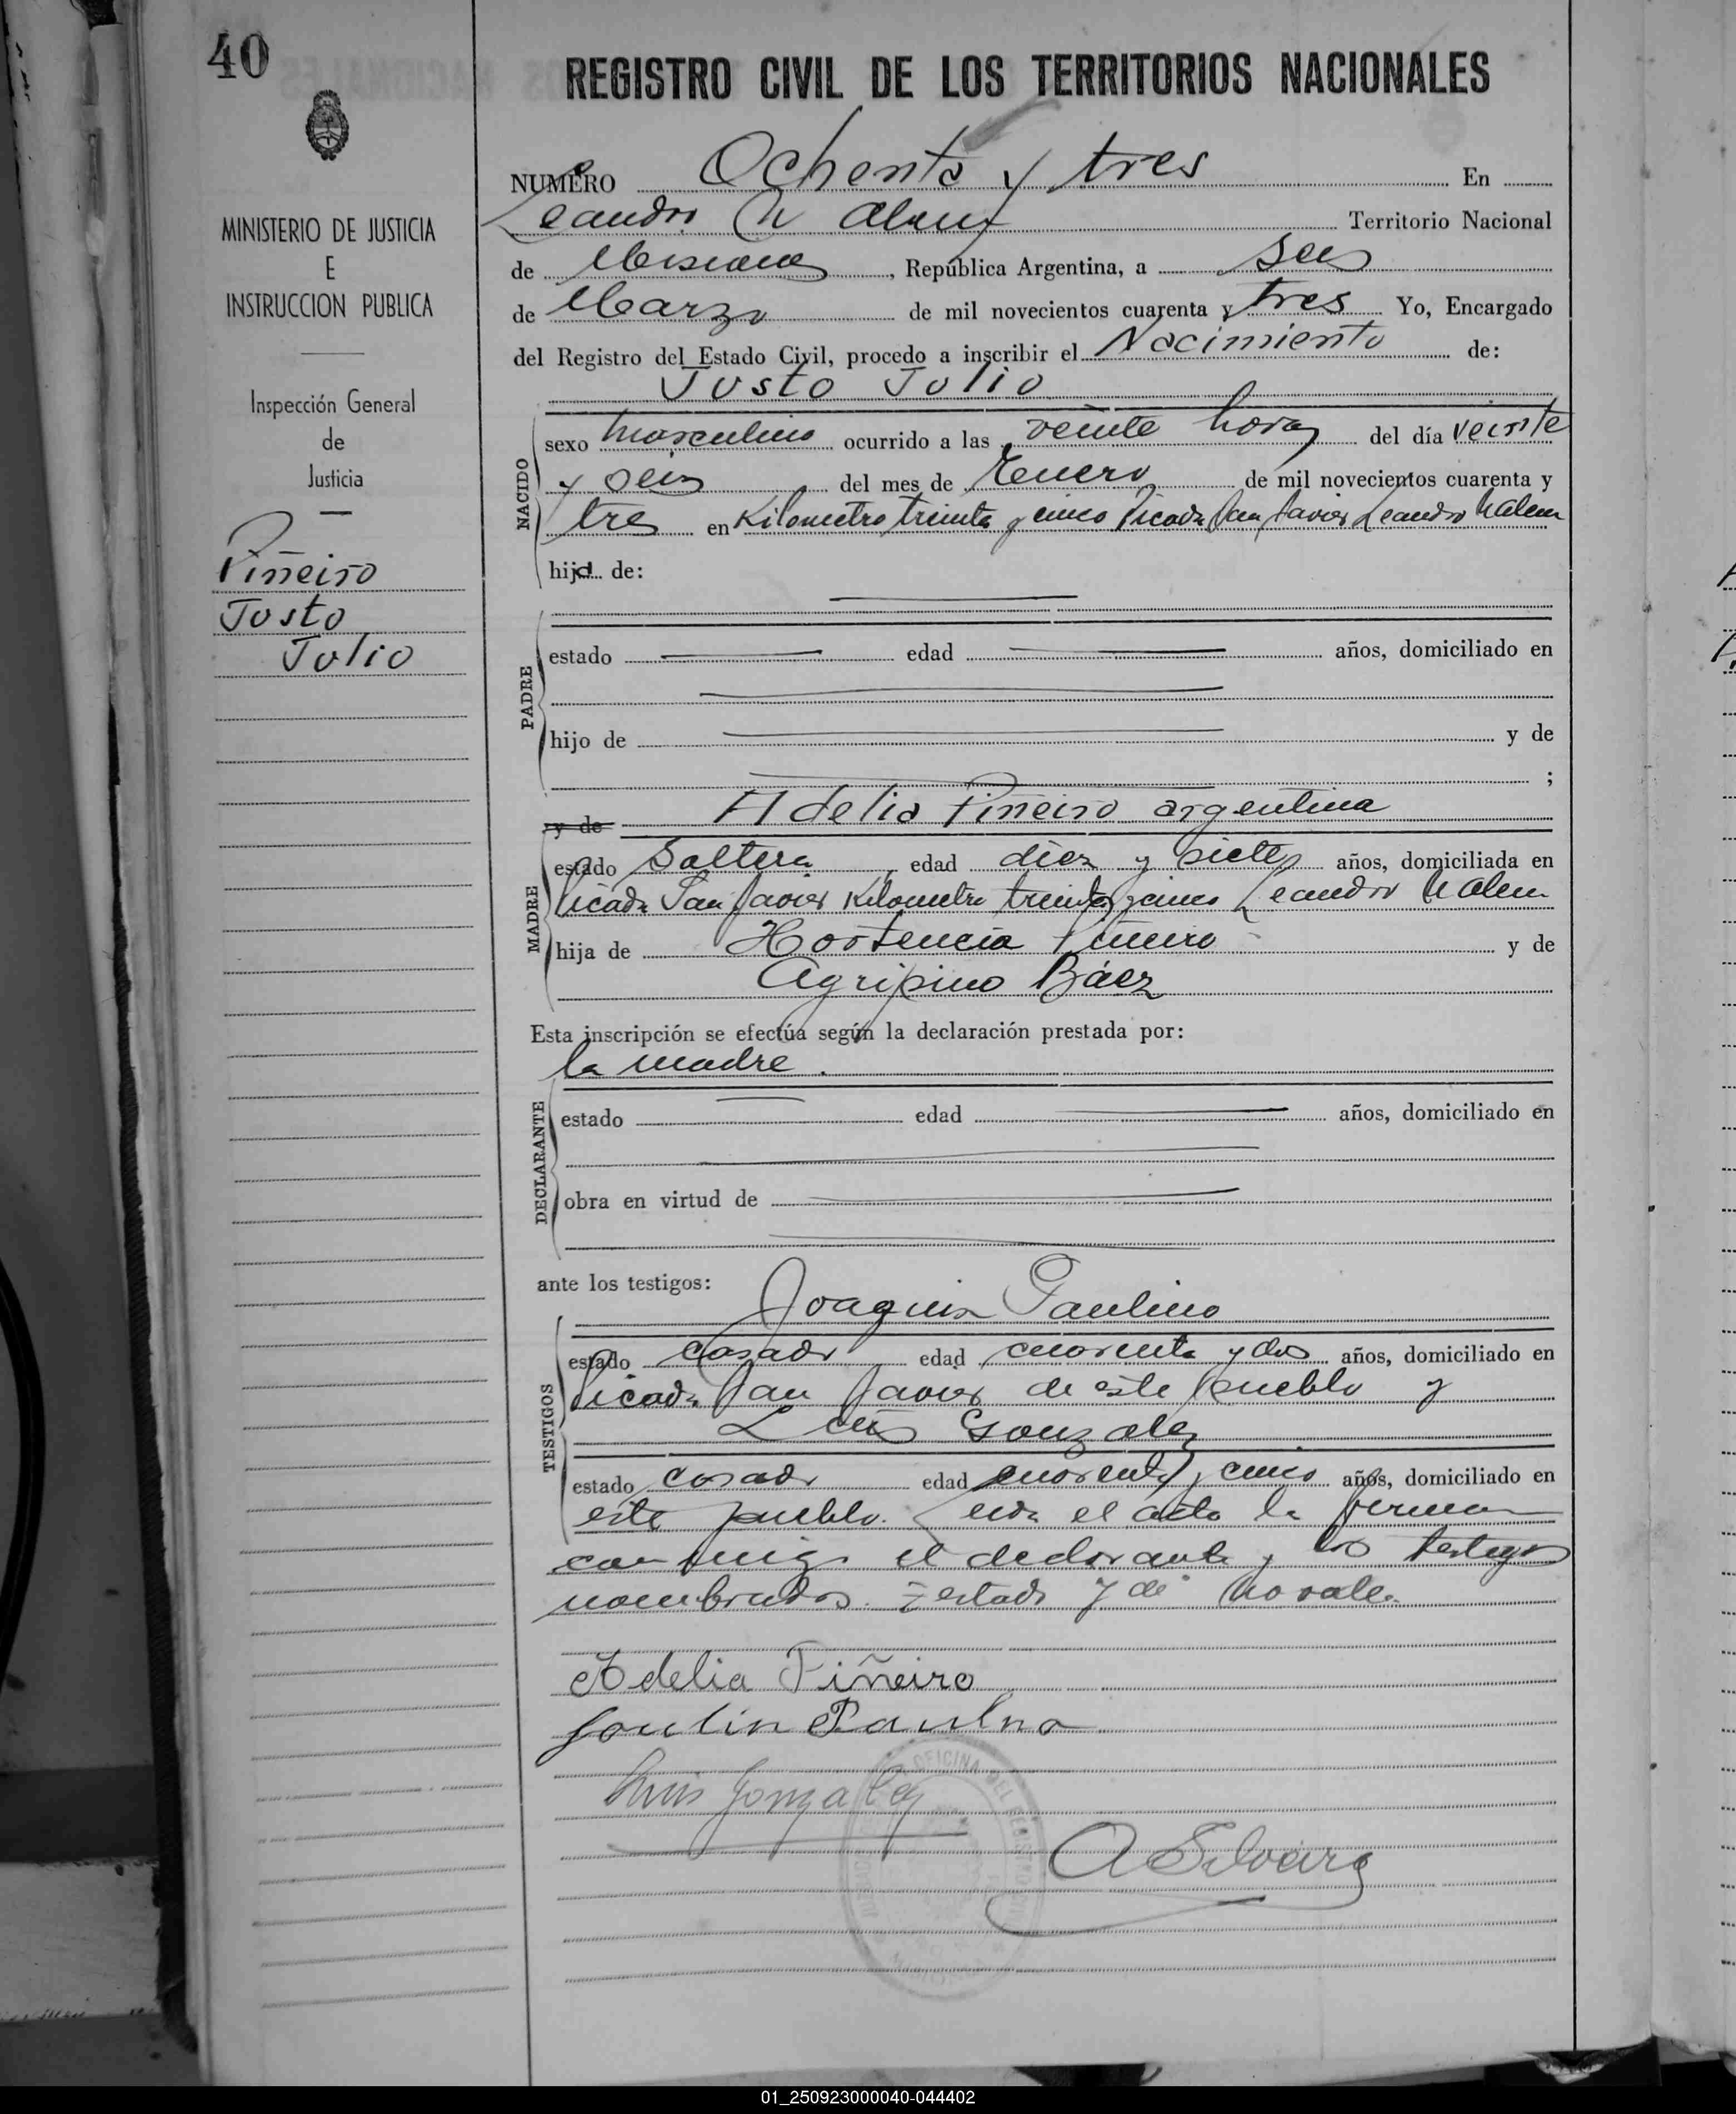 40
REGISTRO CIVIL DE LOS TERRITORIOS NACIONALES
MINISTERIO DE JUSTICIA
E
INSTRUCCION PUBLICA
Inspección General
de
Justicia
Piñeiro
Justo
Julio
NUMERO Ochenta y tres En
Leandro N Alem Territorio Nacional
de Misiones, República Argentina, a seis
de Marzo de mil novecientos cuarenta y tres Yo, Encargado
del Registro del Estado Civil, procedo a inscribir el Nacimiento de:
Justo Julio
NACIDO
sexo masculino ocurrido a las veinte horas del día veinte
y seis del mes de Enero de mil novecientos cuarenta y
tres en Kilometro treinta y cinco Picada San Javier Leandro N Alem
hijo de:
PADRE
estado edad años, domiciliado en
hijo de y de
;
y de Adelia Piñeiro argentina
MADRE
estado Soltera edad diez y siete años, domiciliada en
Picada San Javier Kilometro treinta y cinco Leandro N Alem
hija de Hortencia Piñeiro y de
Agripino Báez
Esta inscripción se efectúa según la declaración prestada por:
la madre.
DECLARANTE
estado edad años, domiciliado en
obra en virtud de
ante los testigos:
Joaquin Paulino
TESTIGOS
estado casado edad cuarenta y dos años, domiciliado en
Picada San Javier de este pueblo y
Luis Gonzalez
estado casado edad cuarenta y cinco años, domiciliado en
este pueblo. Leida el acta la firman
conmigo el declarante y los testigos
nombrados. Testado "y de" No vale.
Adelia Piñeiro
Paulno
Luis Gonzalez
A Silveira
OFICINA DEL REGISTRO
MISIONES
01_250923000040-044402